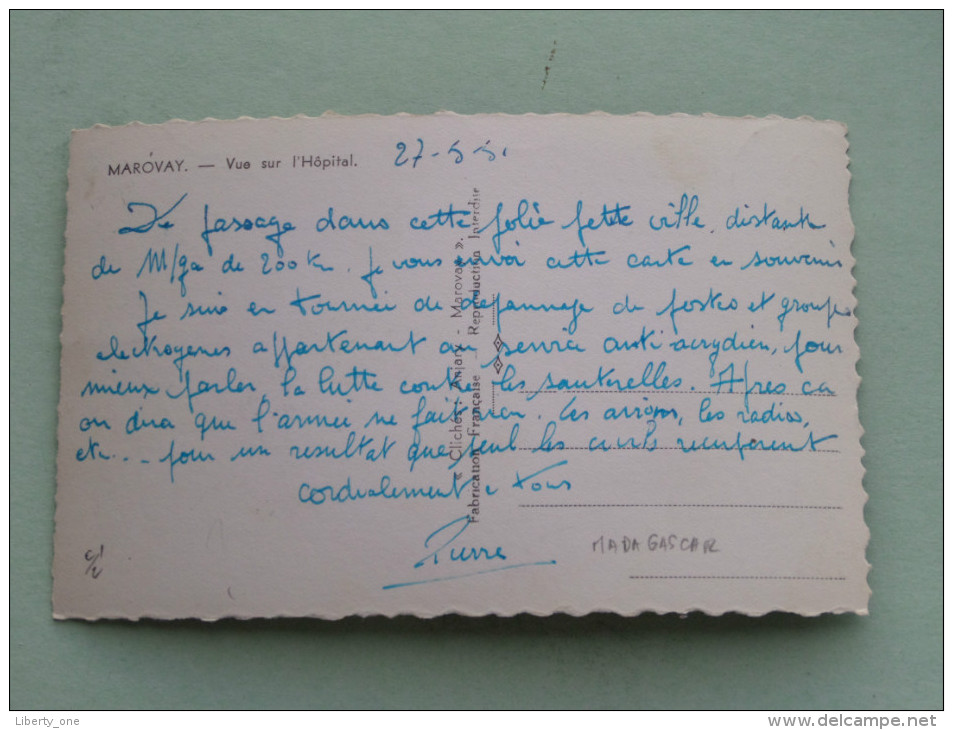 MAROVAY. — Vue sur l'Hôpital.
27-5-51
De passage dans cette jolie petite ville, distante
de M/ga de 200 km. Je vous envoi cette carte en souvenir
Je suis en tournée de dépannage de postes et groupes
electrogenes appartenant au service anti acrydien, pour
mieux parler, la lutte contre les sauterelles. Apres ca
on dira que l'armée ne fait rien. Les avions, les radios,
etc... pour un resultat que seul les civils
cordialement a tous
Pierre
MADAGASCAR
« Clichés : Anjary - Marovay ».
Fabrication Française — Reproduction Interdite
Liberty_one
www.delcampe.net